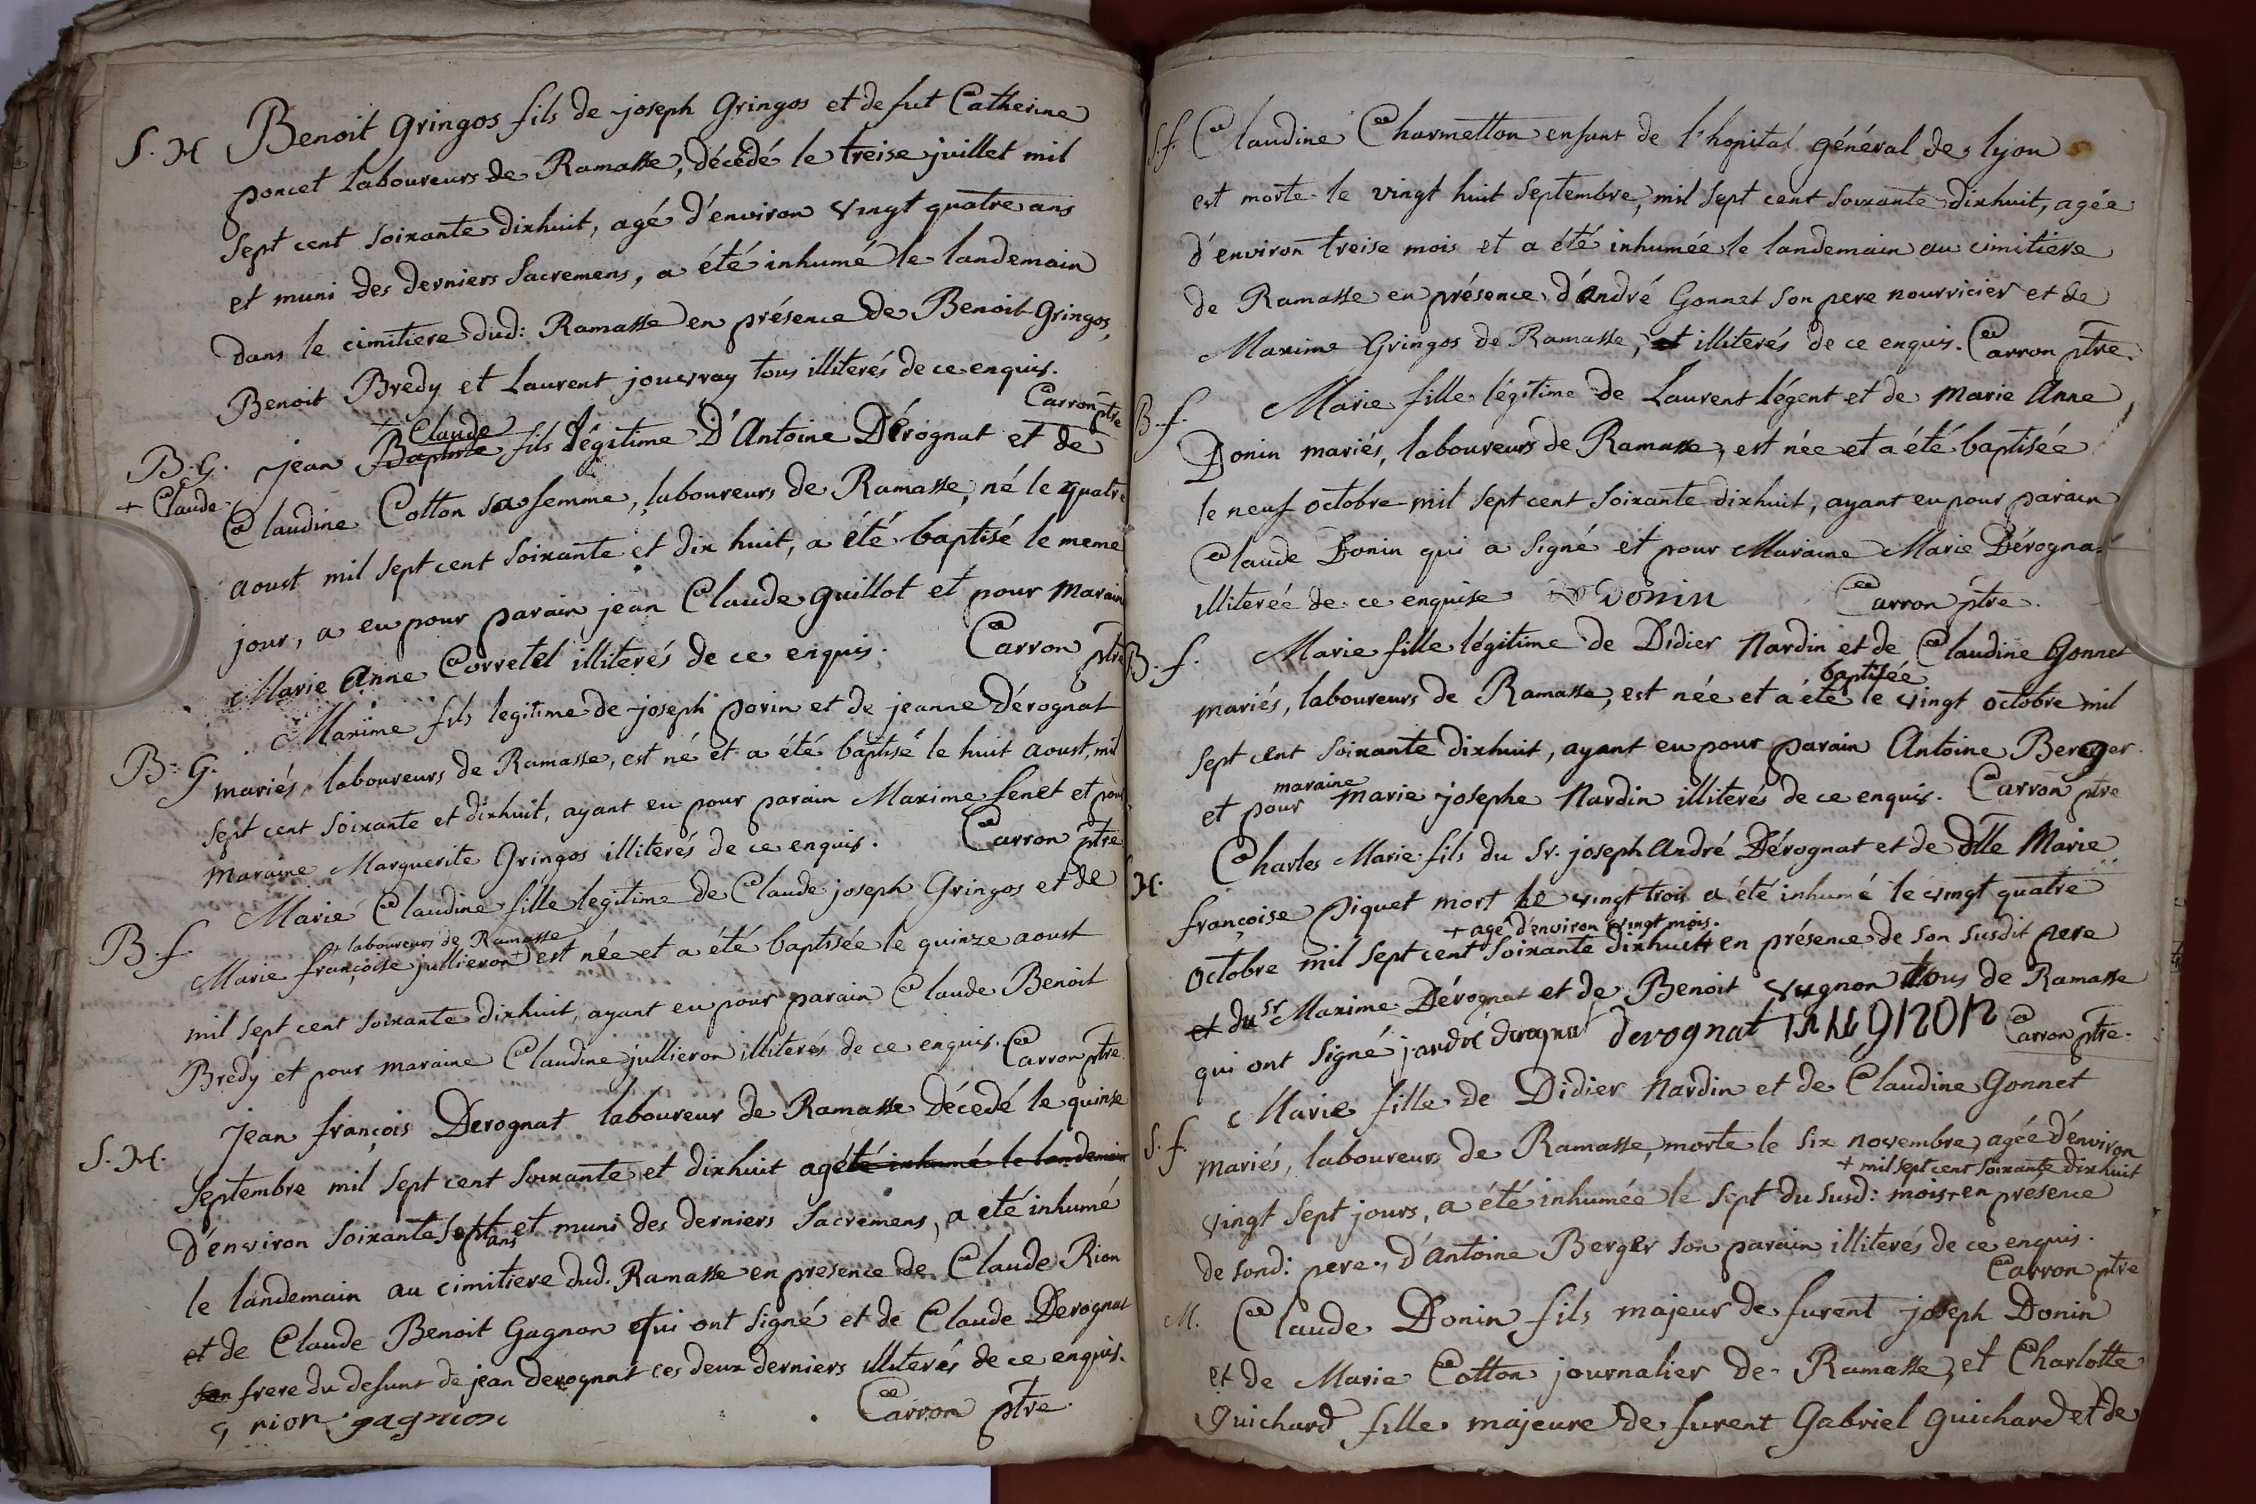 S. H Benoit Gringos fils de joseph Gringos et de fut Catherine
poncet Laboureurs de Ramasse, décédé le treise juillet mil
sept cent soixante dixhuit, agé d'environ vingt quatre ans
et muni des derniers Sacremens, a été inhumé le landemain
dans le cimitiere dud: Ramasse en présence de Benoit Gringos,
Benoit Bredy et Laurent jouvray tous illiterés de ce enquis.
Carron ptre
Claude
B. G. jean Baptiste fils légitime D'Antoine Dérognat et de
+ Claude.
Claudine Cotton sa femme, laboureurs de Ramasse, né le quatre
aoust mil sept cent soixante et dix huit, a été baptisé le meme
jour, a eu pour parain jean Claude guillot et pour Marain
Marie Anne Corretel illiterés de ce enquis. Carron ptre
B. G. Maxime fils legitime de joseph porin et de jeanne dérognat
mariés laboureurs de Ramasse, est né et a été baptisé le huit aoust, mil
sept cent soixante et dixhuit, ayant eu pour parain Maxime fenet et pour
maraine Marguerite Gringos illiterés de ce enquis. Carron ptre
B. f. Marie Claudine fille legitime de Claude joseph Gringos et de
+ laboureurs de Ramasse
Marie françoise jullieron + est née et a été baptisée le quinze aoust
mil sept cent soixante dixhuit, ayant eu pour parain Claude Benoit
Bredy et pour maraine Claudine jullieron illiterés de ce enquis. Carron ptre
S. H. jean françois Derognat laboureur de Ramasse décedé le quinse
septembre mil sept cent soixante et dixhuit agé té inhumé le landemain
d'environ soixante sept et muni des derniers Sacremens, a eté inhumé
ans
le landemain au cimitiere dud. Ramasse en presence de Claude Rion
et de Claude Benoit Gagnon qui ont signé et de Claude Derognat
son frere du defunt de jean derognat ces deux derniers illiterés de ce enquis.
c, rion gagnion Carron ptre.
S. f. Claudine Charmetton enfant de l'hopital général de lyon
est morte le vingt huit septembre, mil sept cent soixante dixhuit, agée
d'environ treise mois et a été inhumée le landemain au cimitiere
de Ramasse en présence d'André Gonnet son pere nourricier et de
Maxime Gringos de Ramasse, et illiterés de ce enquis. Carron ptre.
B. f. Marie fille légitime de Laurent Légent et de Marie Anne
Donin mariés, laboureurs de Ramasse, est née et a été baptisée
le neuf octobre mil sept cent soixante dixhuit, ayant eu pour parain
Claude Donin qui a signé et pour Maraine Marie Dérognat
illiterée de ce enquise Donin Carron ptre.
B. f. Marie fille légitime de Didier Nardin et de Claudine Gonnet
baptisée
mariés, laboureurs de Ramasse, est née et a été le vingt octobre mil
sept cent soixante dixhuit, ayant eu pour parain Antoine Berger
maraine
et pour Marie josephe Nardin illiterés de ce enquis. Carron ptre
H. Charles Marie fils du Sr. joseph André Dérognat et de dlle Marie
françoise piquet mort le vingt trois a été inhumé le vingt quatre
+ agé d'environ vingt mois.
octobre mil sept cent soixante dixhuit + en présence de son susdit pere
et du sr Maxime Dérognat et de Benoit vugnon tous de Ramasse
qui ont signé j andré derognat derognat Carron ptre.
S. f. Marie fille de Didier Nardin et de Claudine Gonnet
mariés, laboureurs de Ramasse, morte le six novembre, agée d'environ
+ mil sept cent soixante dixhuit
vingt sept jours, a été inhumée le sept du susd: mois + en présence
de sond: pere, d'antoine Berger son parain illiterés de ce enquis.
Carron ptre
M. Claude Donin fils majeur de furent joseph Donin
et de Marie Cotton journalier de Ramasse, et Charlotte
Guichard fille majeure de furent Gabriel guichard et de